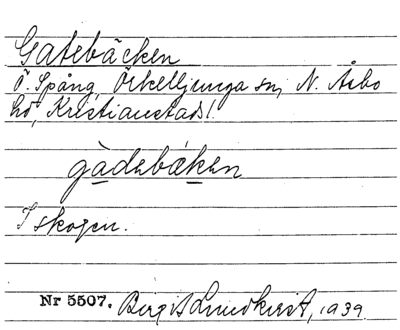 Gatebäcken
Ö. Spång, Örkelljunga sn, N. Åsbo
hd, Kristianstads l.
gàdebæken
I skogen.
Nr 5507. Birgit Lundkvist, 1939